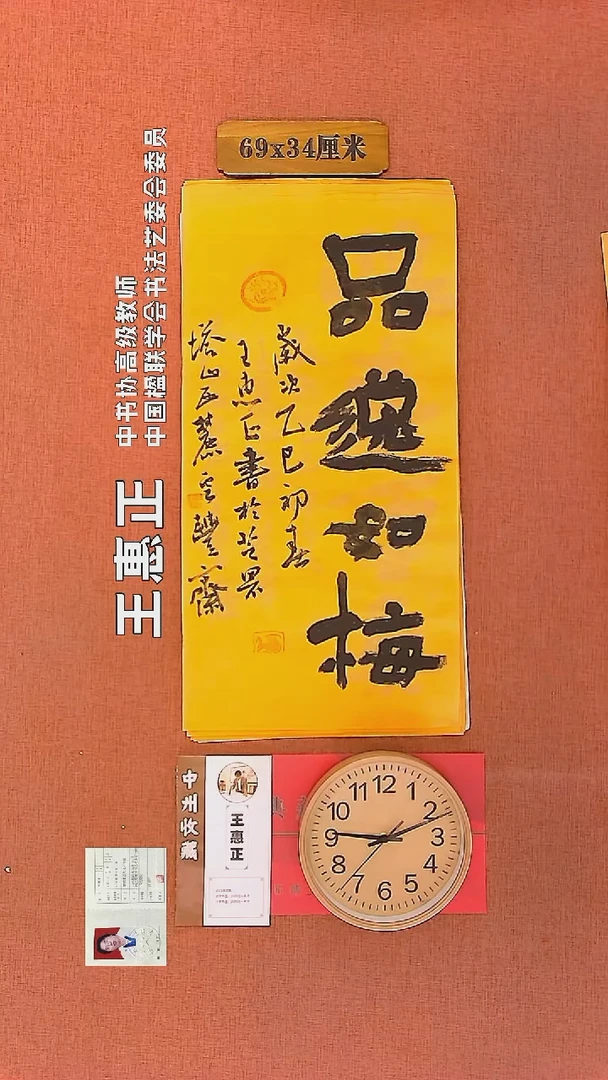 69x34厘米
品逸如梅
歲次乙巳初春
王惠正書於苍累
塔山五麓
齋
中书协高级教师
中国楹联学会书法艺委会委员
王惠正
中州收藏
王惠正
12
1
2
3
4
5
6
7
8
9
10
11